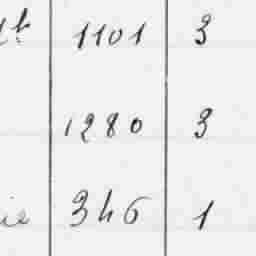 1101 3
1280 3
346 1